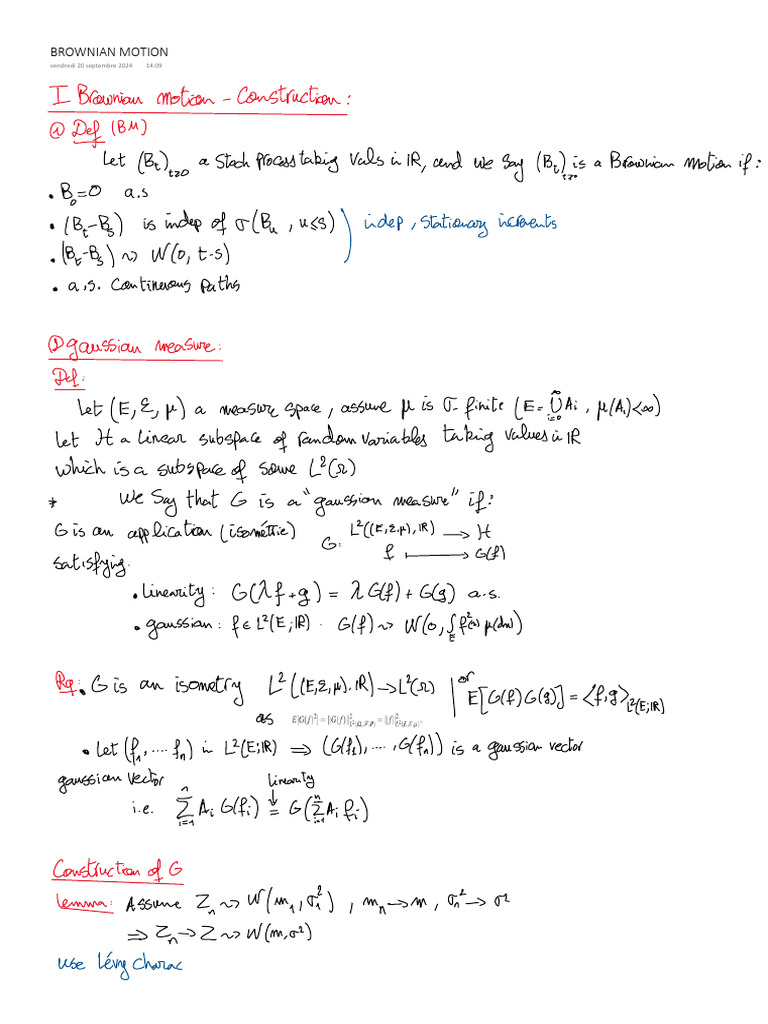 BROWNIAN MOTION
vendredi 20 septembre 2024 14:09
I Brownian motion - Construction:
@ Def (BM)
Let (B_t)_{t≥0} a Stoch Process taking Vals in IR, and we say (B_t)_{t≥0} is a Brownian motion if:
• B_0 = 0 a.s
• (B_t - B_s) is indep of σ(B_u, u≤s) ) indep, stationary increments
• (B_t - B_s) ~ N(0, t-s)
• a.s. Continuous paths
① gaussian measure:
Def:
Let (E, Ɛ, μ) a measure space, assume μ is σ-finite (E = ∪_{i=0}^{∞} A_i, μ(A_i)<∞)
Let H a linear subspace of random variables taking values in IR
which is a subspace of some L²(Ω)
* We Say that G is a "gaussian measure" if:
G is an application (isométrie) G: L²((E,Ɛ,μ), IR) → H
f ↦ G(f)
satisfying.
• linearity: G(λf+g) = λG(f) + G(g) a.s.
• gaussian: f ∈ L²(E; IR). G(f) ~ N(0, ∫_E f²(x) μ(dx))
Rq: • G is an isometry L²((E,Ɛ,μ), IR) → L²(Ω) | or E[G(f)G(g)] = <f,g>_{L²(E;IR)}
as E[G(f)²] = ||G(f)||²_{L²(Ω,F,P)} = ||f||²_{L²(E,Ɛ,μ)}.
• Let (f_1, ... f_n) in L²(E;IR) ⇒ (G(f_1), ..., G(f_n)) is a gaussian vector
gaussian vector linearity
i.e. Σ_{i=1}^{n} A_i G(f_i) ↓= G(Σ_{i=1}^{n} A_i f_i)
Construction of G
Lemma: Assume Z_n ~ N(m_1, σ_1²), m_n → m, σ_n² → σ²
⇒ Z_n → Z ~ N(m, σ²)
use Lévy Charac